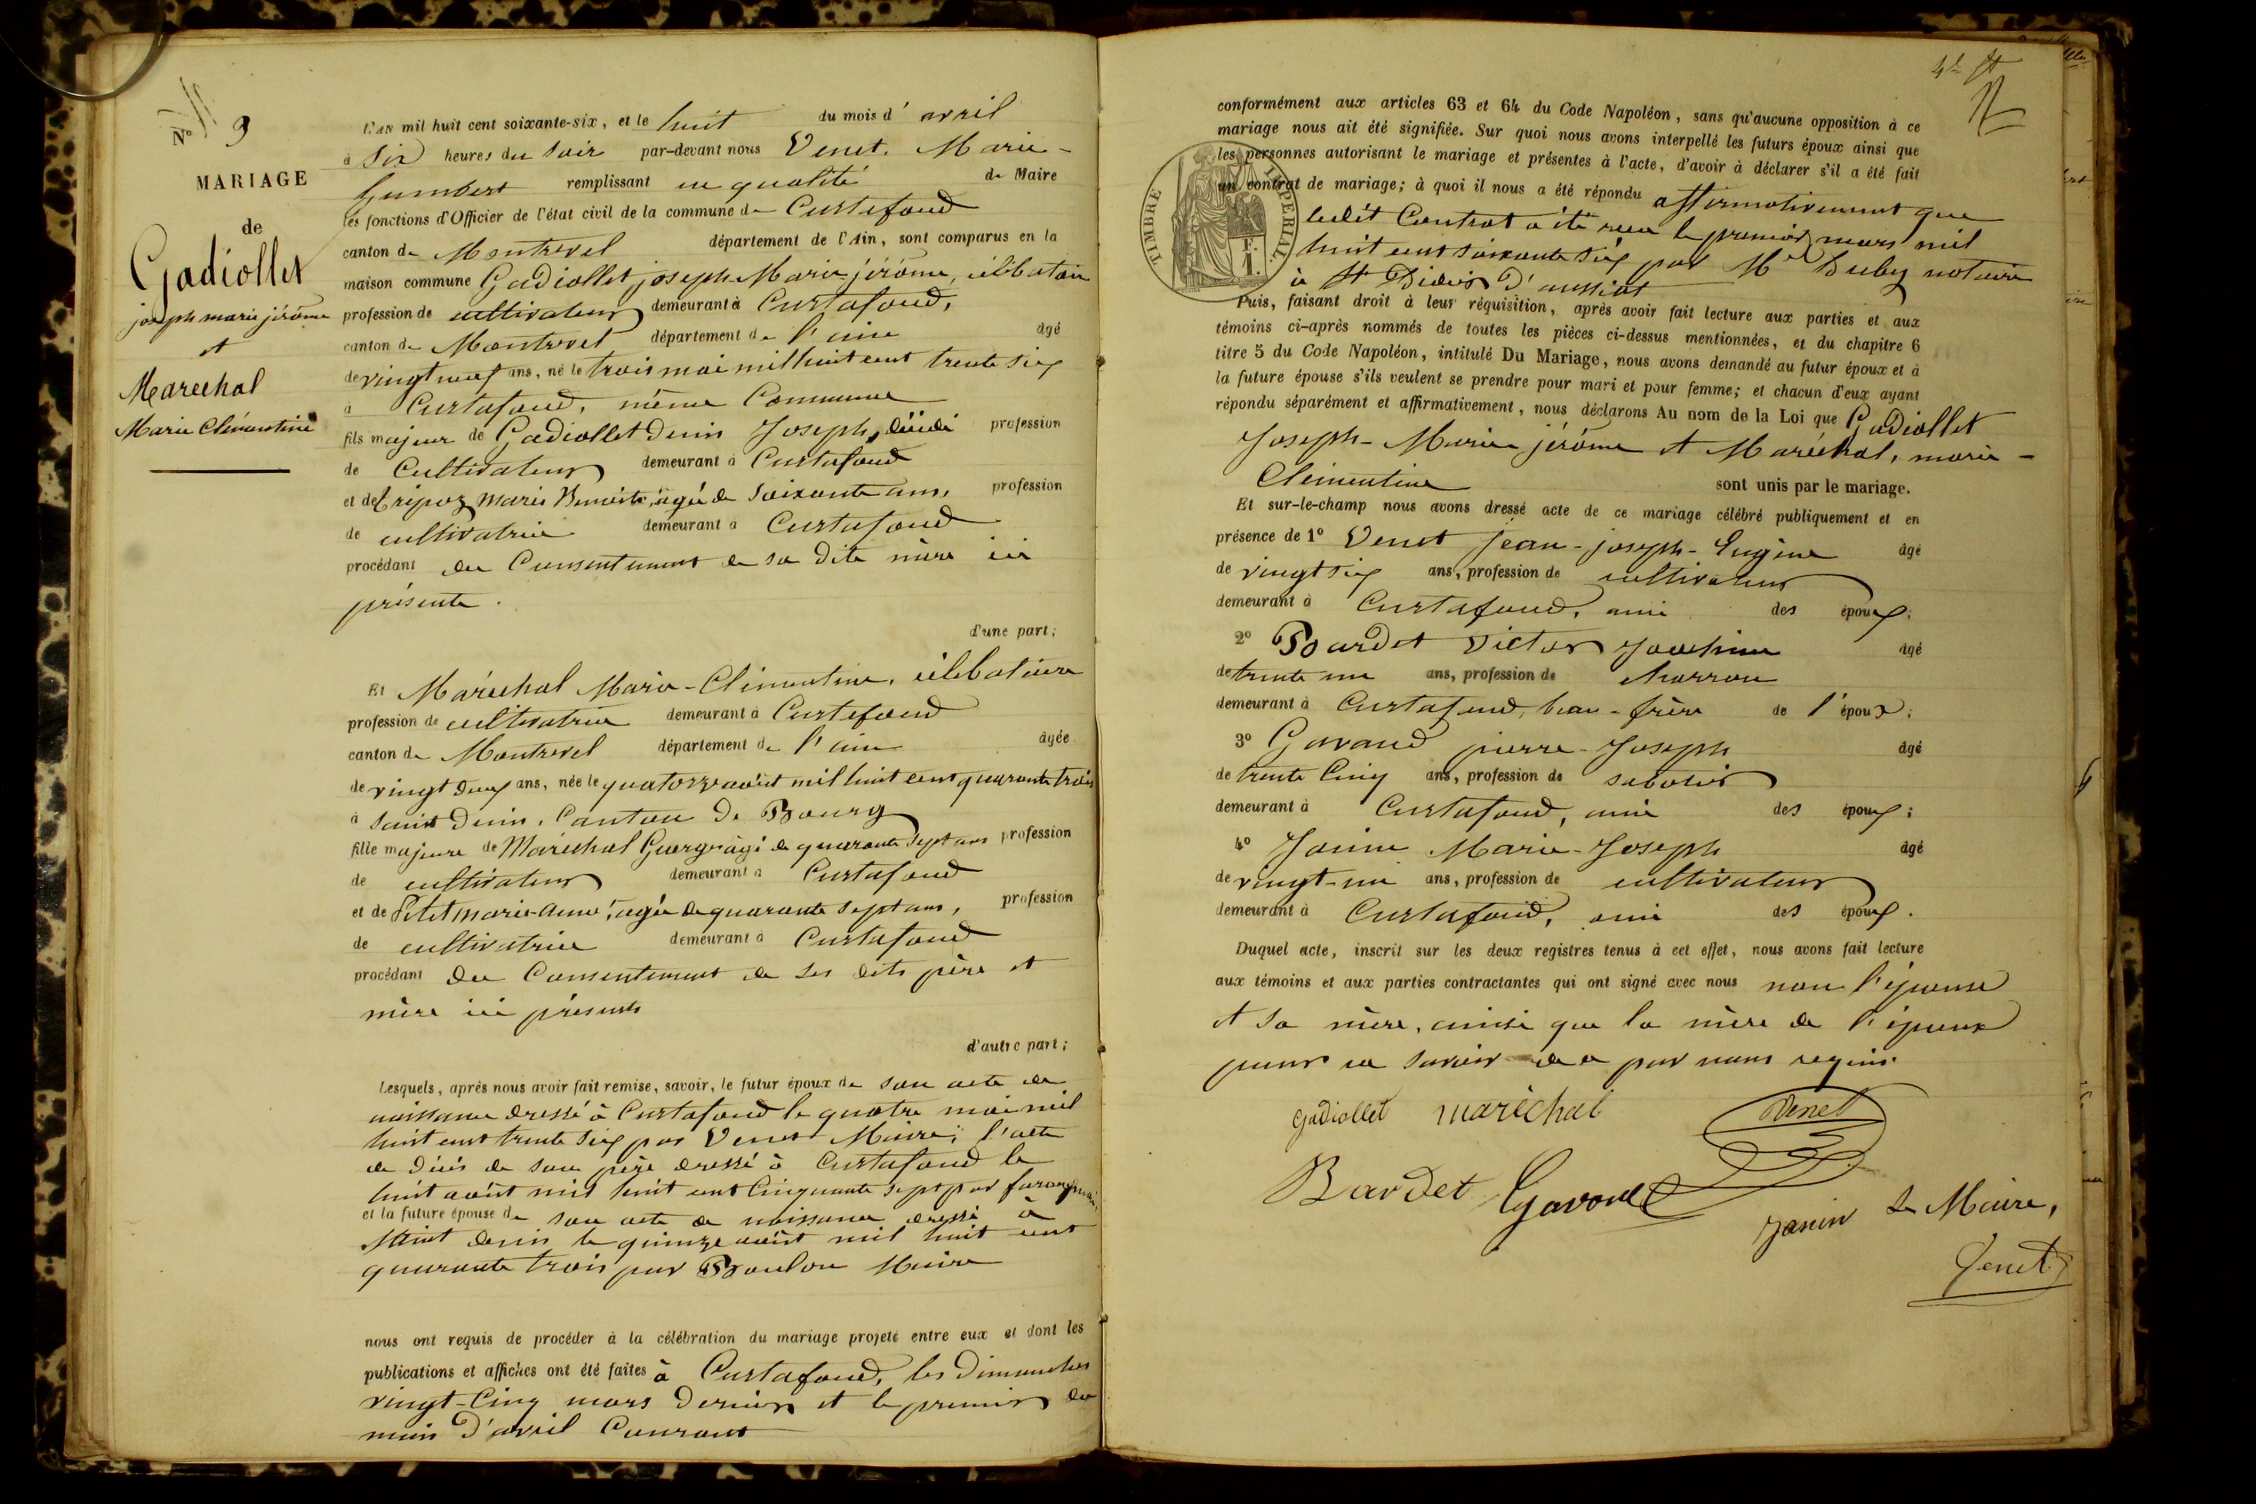 N° 9
MARIAGE
de
Gadiollet
joseph marie jérôme
et
Marechal
Marie Clémentine
L'an mil huit cent soixante-six, et le huit du mois d' avril
à six heures du soir par-devant nous Venet. Marie-
Humbert remplissant en qualité de Maire
les fonctions d'Officier de l'état civil de la commune de Curtafond
canton de Montrevel département de l'Ain, sont comparus en la
maison commune Gadiollet joseph Marie jérôme, célibataire
profession de cultivateur demeurant à Curtafond,
canton de Montrevel département de l'ain âgé
de vingt neuf ans, né le trois mai mil huit cent trente six
à Curtafond, même Commune
fils majeur de Gadiollet Denis Joseph, décédé profession
de Cultivateur demeurant à Curtafond
et de Tripoz Marie Benoite, agée de soixante ans, profession
de cultivatrice demeurant à Curtafond
procédant du Consentement de sa dite mère ici
présente.
d'une part;
Et Maréchal Marie-Clémentine, célibataire
profession de cultivatrice demeurant à Curtafond
canton de Montrevel département de l'ain âgée
de vingt deux ans, née le quatorze août mil huit cent quarante trois
à saint Denis, Canton de Bourg
fille majeure de Maréchal George âgé de quarante sept ans profession
de cultivateur demeurant à Curtafond
et de Petit marie-anne, agée de quarante sept ans, profession
de cultivatrice demeurant à Curtafond
procédant du Consentement de ses dits père et
mère ici présents
d'autre part;
Lesquels, après nous avoir fait remise, savoir, le futur époux de son acte de
naissance dressé à Curtafond le quatre mai mil
huit cent trente six par Venet Maire; l'acte
de décès de son père dressé à Curtafond le
huit août mil huit cent Cinquante sept par
et la future épouse de son acte de naissance dressé à
Saint denis le quinze août mil huit cent
quarante trois par Maire
nous ont requis de procéder à la célébration du mariage projeté entre eux et dont les
publications et affiches ont été faites à Curtafond, les Dimanches
vingt-Cinq mars Dernier et le premier du
mois d'avril Courant
conformément aux articles 63 et 64 du Code Napoléon, sans qu'aucune opposition à ce
mariage nous ait été signifiée. Sur quoi nous avons interpellé les futurs époux ainsi que
les personnes autorisant le mariage et présentes à l'acte, d'avoir à déclarer s'il a été fait
un contrat de mariage; à quoi il nous a été répondu affirmativement que
ledit Contrat a été reçu le premier mars mil
huit cent soixante six par Me Duby notaire
à St Didier d'aussiat
TIMBRE IMPERIAL.
1 F.
Puis, faisant droit à leur réquisition, après avoir fait lecture aux parties et aux
témoins ci-après nommés de toutes les pièces ci-dessus mentionnées, et du chapitre 6
titre 5 du Code Napoléon, intitulé Du Mariage, nous avons demandé au futur époux et à
la future épouse s'ils veulent se prendre pour mari et pour femme; et chacun d'eux ayant
répondu séparément et affirmativement, nous déclarons Au nom de la Loi que Gadiollet
Joseph-Marie jérôme et Maréchal, marie-
Clémentine sont unis par le mariage.
Et sur-le-champ nous avons dressé acte de ce mariage célébré publiquement et en
présence de 1° Venet jean-joseph-Eugène âgé
de vingt six ans, profession de cultivateur
demeurant à Curtafond, ami des époux;
2° Bardet Victor Joachim âgé
de trente un ans, profession de charron
demeurant à Curtafond, beau-frère de l'époux;
3° Gavand pierre-Joseph âgé
de trente Cinq ans, profession de sabotier
demeurant à Curtafond, ami des époux;
4° Janin Marie-Joseph âgé
de vingt-un ans, profession de cultivateur
demeurant à Curtafond, ami des époux.
Duquel acte, inscrit sur les deux registres tenus à cet effet, nous avons fait lecture
aux témoins et aux parties contractantes qui ont signé avec nous non l'épouse
et sa mère, ainsi que la mère de l'époux
pour ne savoir de ce par nous requis.
Gadiollet maréchal Venet
Bardet Gavand
Janin Le Maire,
Venet